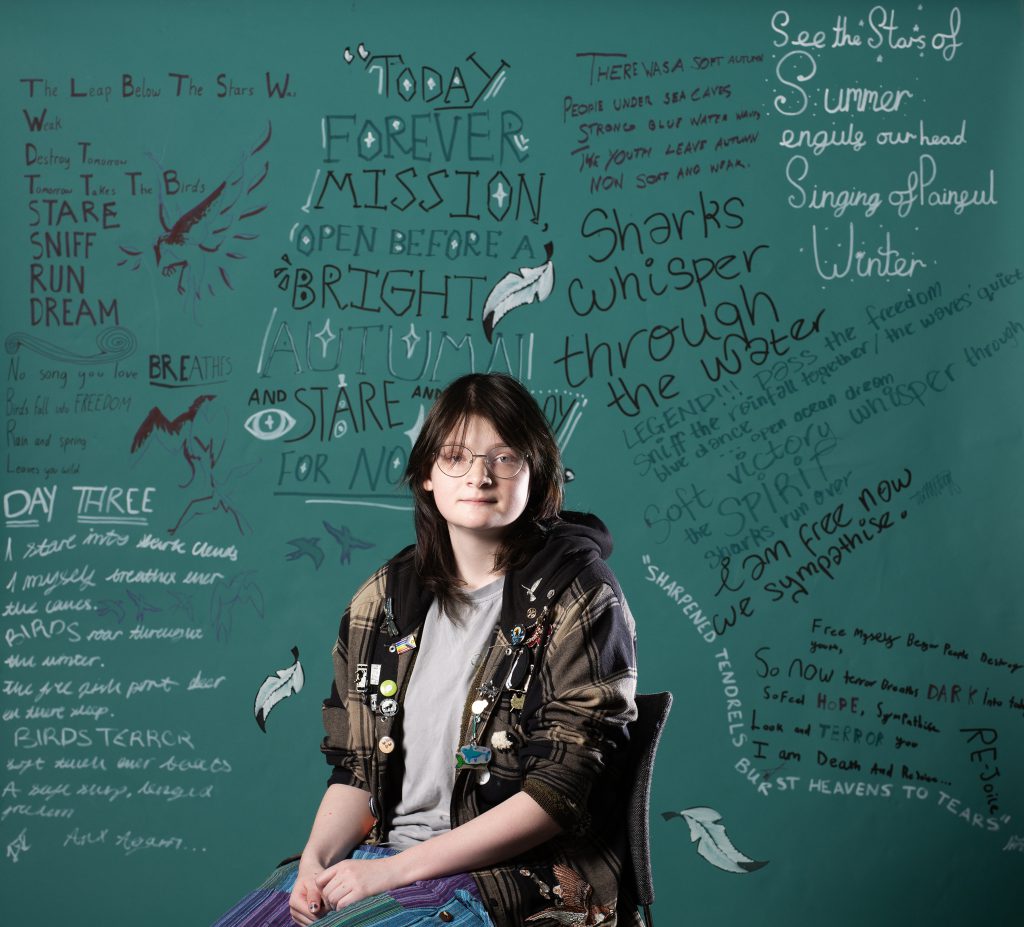 The Leap Below The Stars Was
Weak
Destroy Tomorrow
Tomorrow Takes The Birds
STARE
SNIFF
RUN
DREAM
No song you love BREATHES
Birds fall into FREEDOM
Rain and spring
Leaves you wild
DAY THREE
I stare into dark clouds
I myself breathe over
the caves.
BIRDS roar through
the winter.
BIRDS TERROR
And Again...
"TODAY
FOREVER
MISSION,
OPEN BEFORE A
"BRIGHT
AUTUMN
AND STARE AND
FOR NO
THERE WAS A SOFT AUTUMN
PEOPLE UNDER SEA CAVES
STRONG BLUE WATER WAVES
THE YOUTH LEAVE AUTUMN
NON SOFT AND WEAK.
See the Stars of
Summer
engulf our head
Singing of Painful
Winter
Sharks
whisper
through
the water
LEGEND!!! pass the freedom
sniff the rainfall together / the waves' quiet
blue dance open ocean dream
Soft victory whisper through
the SPIRIT
sharks run over
I am free now
we sympathise.
"SHARPENED TENDRELS BURST HEAVENS TO TEARS"
Free Myself Began People Destroy
yours,
So now terror Breaths DARK Into
So feel HOPE, Sympathise
Look and TERROR you
I am Death And
RE-Joice